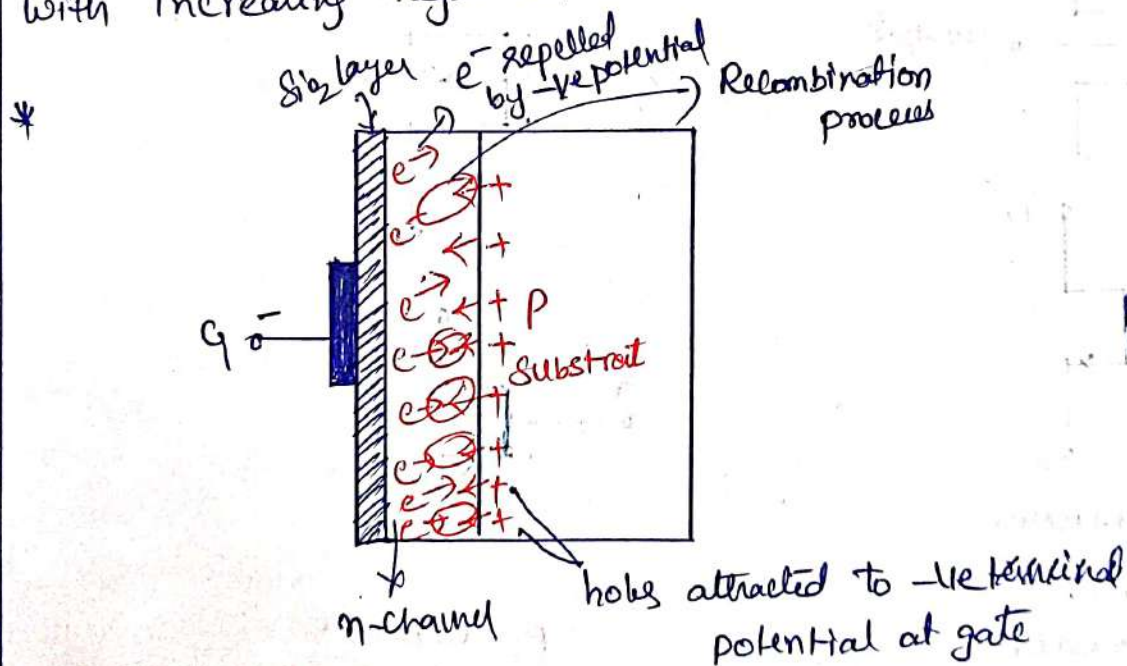 with increasing
*
SiO2 layer
e- repelled
by -ve potential
Recombination
process
e
+
e
+
e
+ P
e +
Substrait
e +
e +
e +
e +
G -
n-channel
holes attracted to -ve terminal
potential at gate